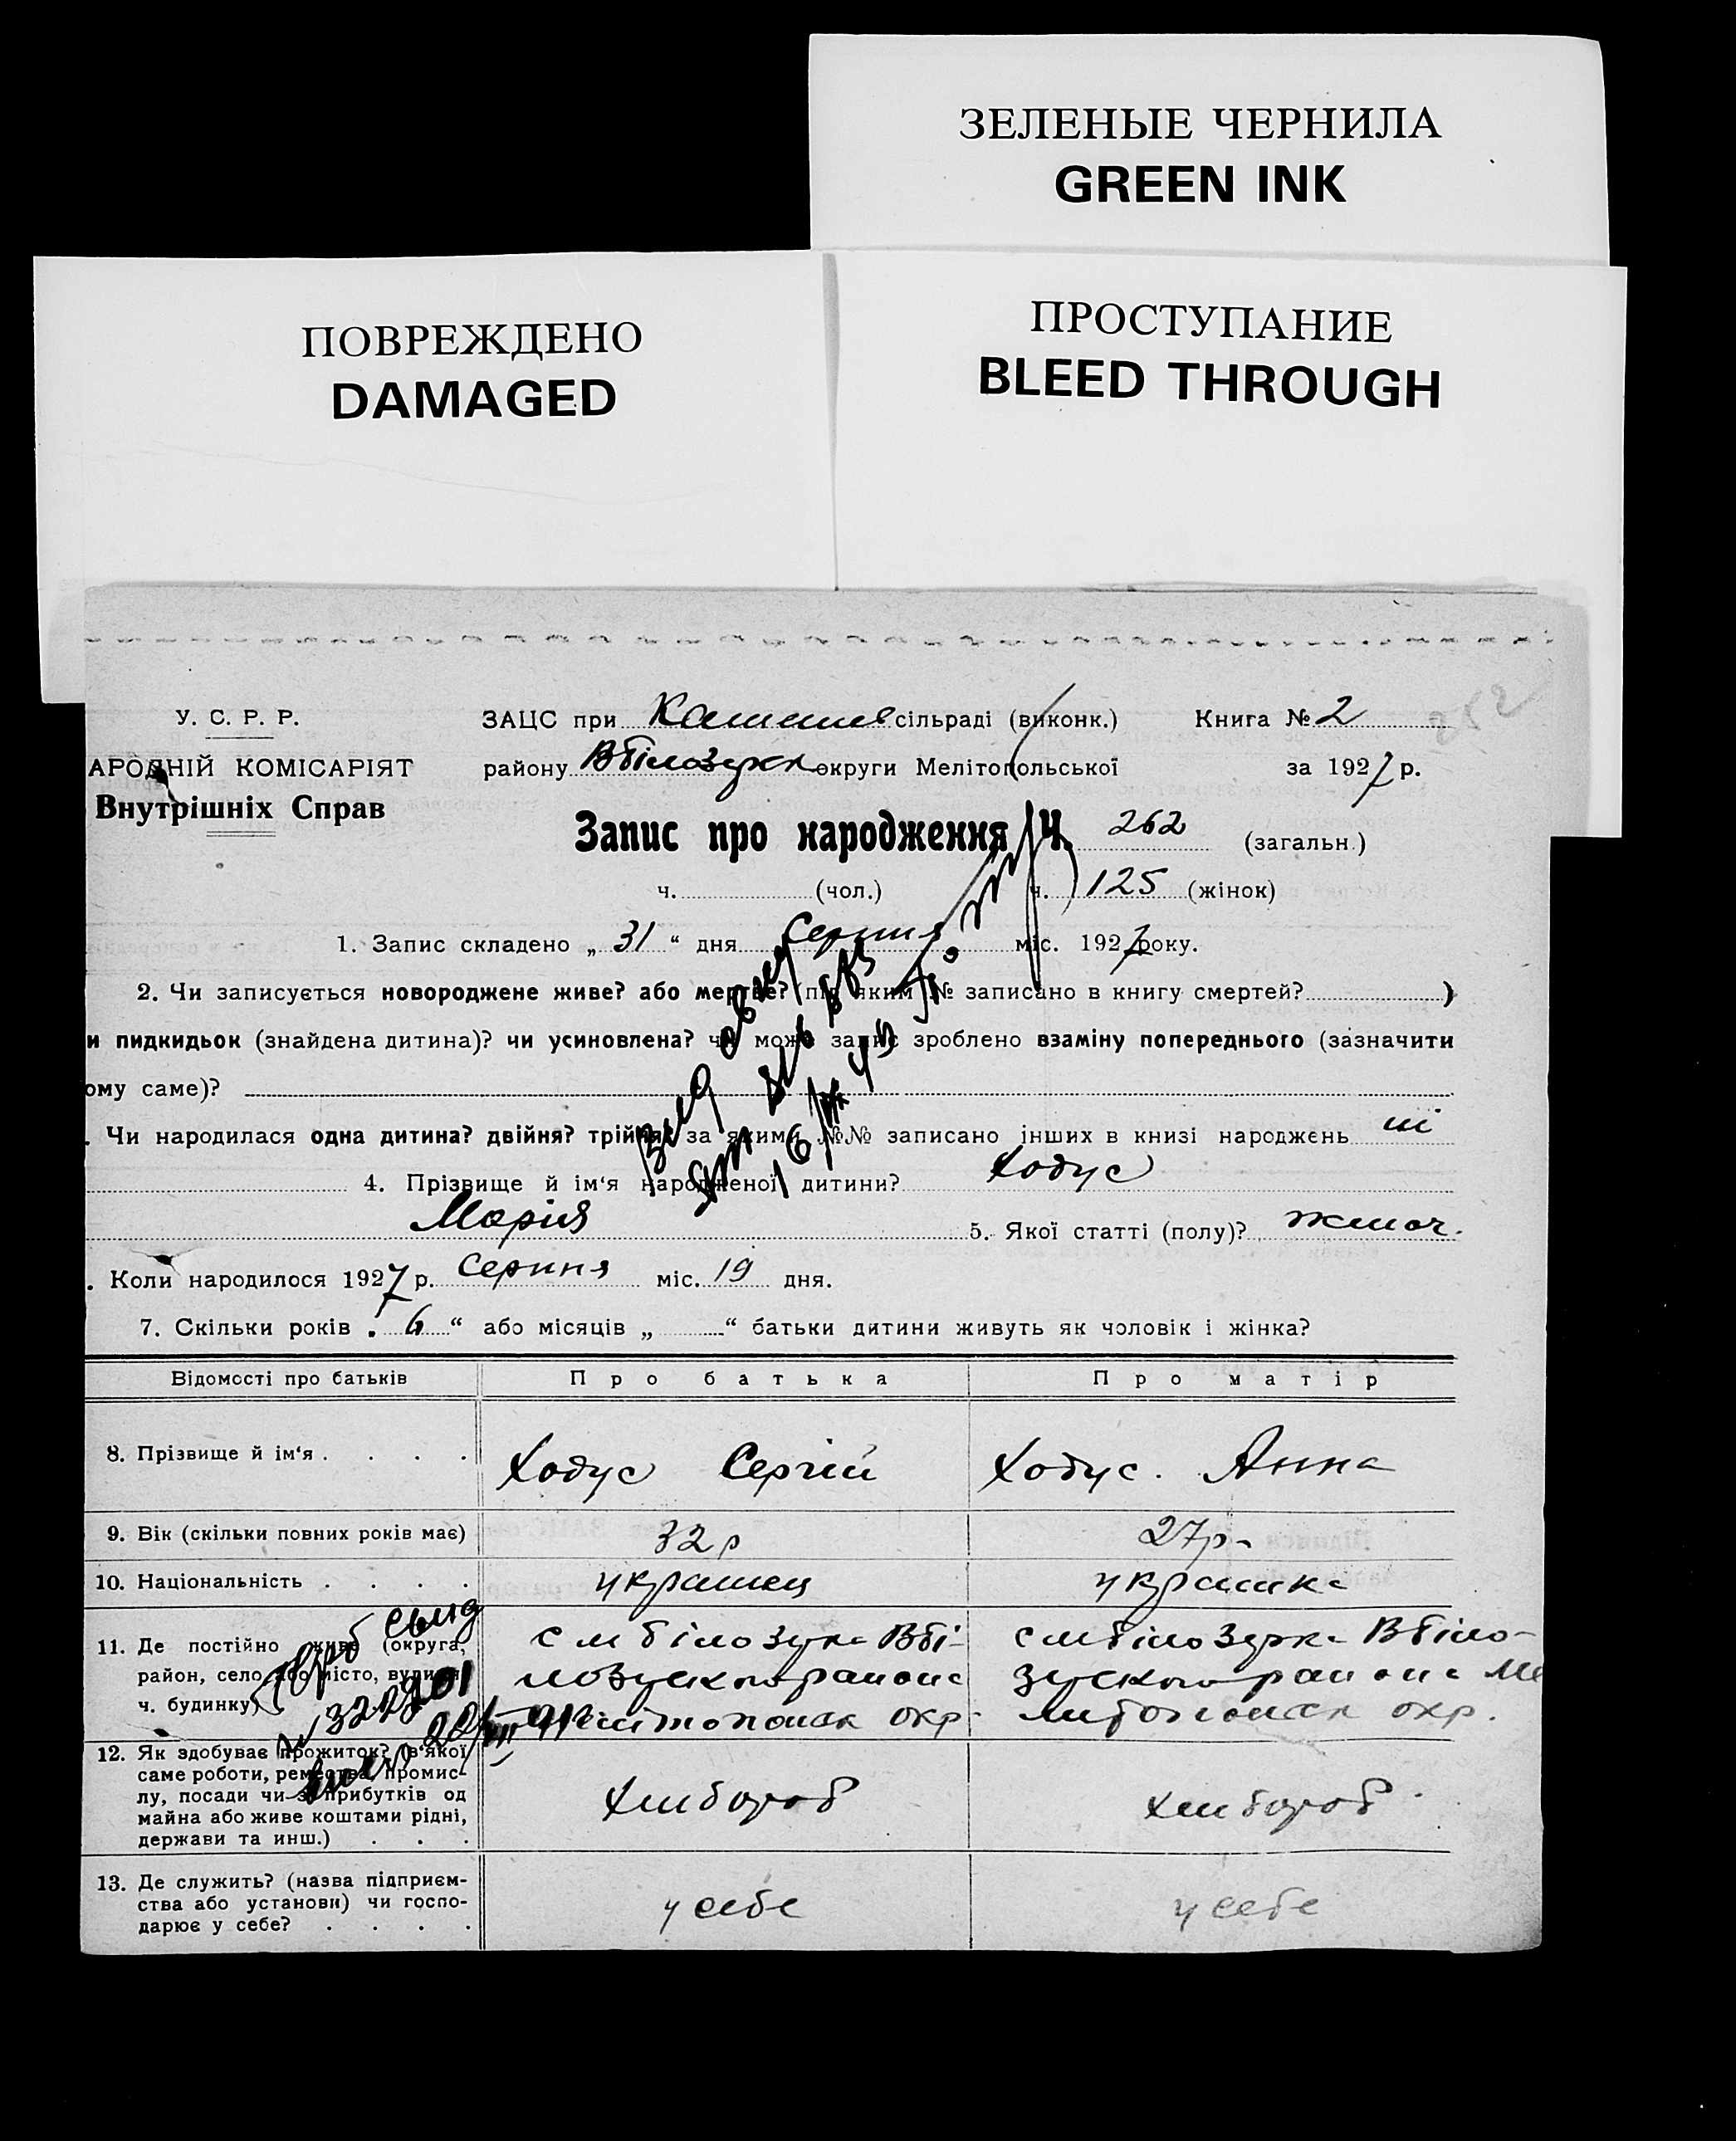 ЗЕЛЕНЫЕ ЧЕРНИЛА
GREEN INK
ПОВРЕЖДЕНО
DAMAGED
ПРОСТУПАНИЕ
BLEED THROUGH
У. С. Р. Р.
ЗАЦС при сільраді (виконк.) Книга № 2
АРОДНІЙ КОМІСАРІЯТ
району округи Мелітопольської за 1927 р.
Внутрішніх Справ
Запис про народження Ч. 262 (загальн.)
ч. (чол.) ч. 125 (жінок)
1. Запис складено „ 31 “ дня Серпня міс. 1927 року.
2. Чи записується новороджене живе? або мертве? (під яким № записано в книгу смертей? )
и пидкидьок (знайдена дитина)? чи усиновлена? чи може запис зроблено взаміну попереднього (зазначити
ому саме)?
. Чи народилася одна дитина? двійня? трійня? за якими №№ записано інших в книзі народжень ні
4. Прізвище й ім‘я народженої дитини? Ходус
Марія 5. Якої статті (полу)? жіноч.
. Коли народилося 1927 р. Серпня міс. 19 дня.
7. Скільки років „ 6 “ або місяців „ “ батьки дитини живуть як чоловік і жінка?
Відомості про батьків Про батька Про матір
8. Прізвище й ім‘я . . . . Ходус Сергій Ходус. Анна
9. Вік (скільки повних років має) 32 р 27 р.
10. Національність . . . . украінец украінка
11. Де постійно живе (округа,
район, село або місто, вулиця,
ч. будинку)
12. Як здобуває прожиток? (в‘якої
саме роботи, ремества, промис-
лу, посади чи з прибутків од
майна або живе коштами рідні,
держави та инш.) . . .
Хлібороб Хлібороб
13. Де служить? (назва підприєм-
ства або установи) чи госпо-
дарює у себе? . . . .
у себе у себе